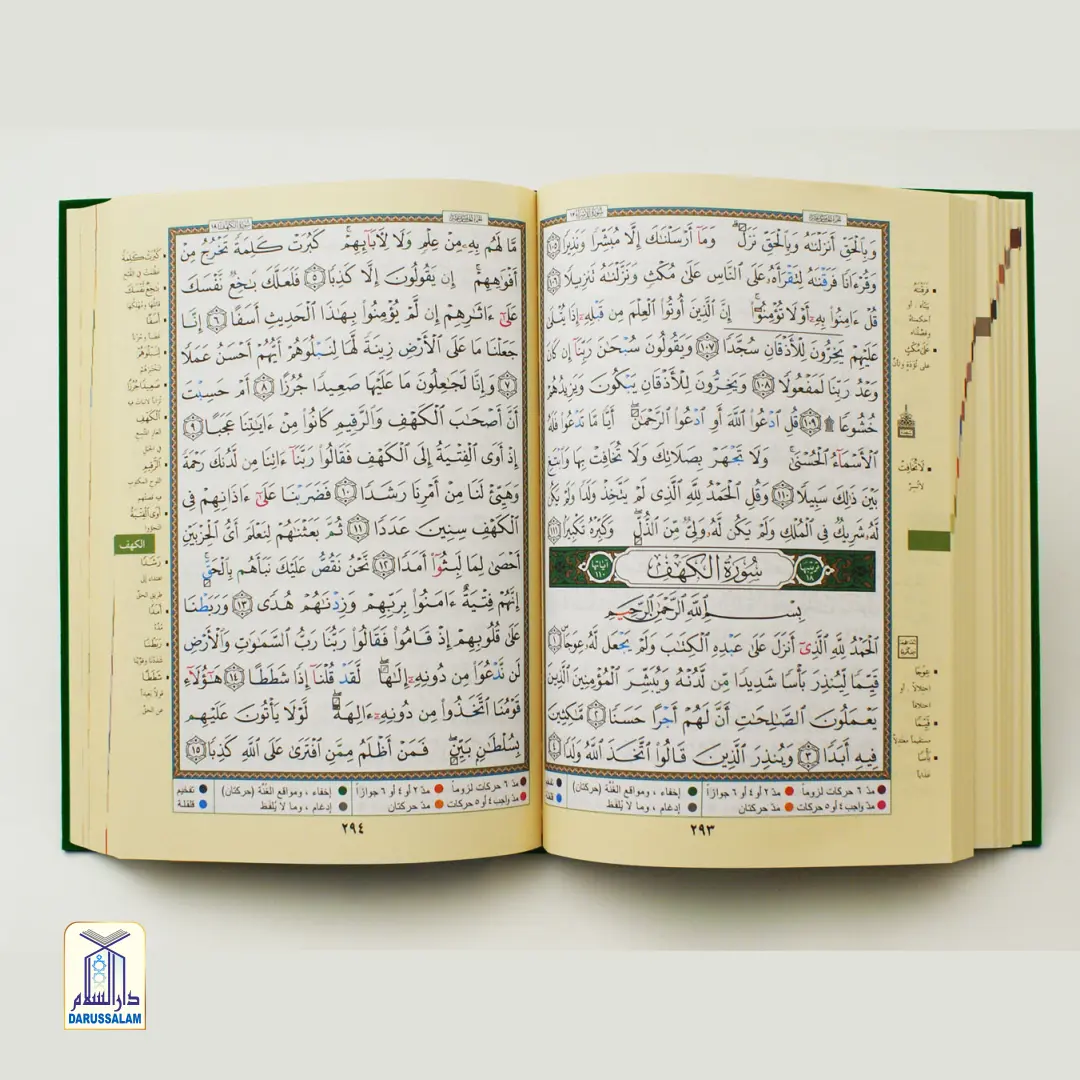 سورة الإسراء ١٧
وَبِالْحَقِّ أَنزَلْنَاهُ وَبِالْحَقِّ نَزَلَ ۗ وَمَا أَرْسَلْنَاكَ إِلَّا مُبَشِّرًا وَنَذِيرًا ١٠٥
وَقُرْءَانًا فَرَقْنَاهُ لِتَقْرَأَهُ عَلَى النَّاسِ عَلَىٰ مُكْثٍ وَنَزَّلْنَاهُ تَنزِيلًا ١٠٦
قُلْ ءَامِنُوا بِهِ أَوْ لَا تُؤْمِنُوا ۚ إِنَّ الَّذِينَ أُوتُوا الْعِلْمَ مِن قَبْلِهِ إِذَا يُتْلَىٰ
عَلَيْهِمْ يَخِرُّونَ لِلْأَذْقَانِ سُجَّدًا ١٠٧ وَيَقُولُونَ سُبْحَانَ رَبِّنَا إِن كَانَ
وَعْدُ رَبِّنَا لَمَفْعُولًا ١٠٨ وَيَخِرُّونَ لِلْأَذْقَانِ يَبْكُونَ وَيَزِيدُهُمْ
خُشُوعًا ۩ ١٠٩ قُلِ ادْعُوا اللَّهَ أَوِ ادْعُوا الرَّحْمَٰنَ ۖ أَيًّا مَّا تَدْعُوا فَلَهُ
الْأَسْمَاءُ الْحُسْنَىٰ ۚ وَلَا تَجْهَرْ بِصَلَاتِكَ وَلَا تُخَافِتْ بِهَا وَابْتَغِ
بَيْنَ ذَٰلِكَ سَبِيلًا ١١٠ وَقُلِ الْحَمْدُ لِلَّهِ الَّذِي لَمْ يَتَّخِذْ وَلَدًا وَلَمْ يَكُن
لَّهُ شَرِيكٌ فِي الْمُلْكِ وَلَمْ يَكُن لَّهُ وَلِيٌّ مِّنَ الذُّلِّ ۖ وَكَبِّرْهُ تَكْبِيرًا ١١١
ترتيبها ١٨ سُورَةُ الْكَهْفِ آياتها ١١٠
بِسْمِ اللَّهِ الرَّحْمَٰنِ الرَّحِيمِ
الْحَمْدُ لِلَّهِ الَّذِي أَنزَلَ عَلَىٰ عَبْدِهِ الْكِتَابَ وَلَمْ يَجْعَل لَّهُ عِوَجًا ١
قَيِّمًا لِّيُنذِرَ بَأْسًا شَدِيدًا مِّن لَّدُنْهُ وَيُبَشِّرَ الْمُؤْمِنِينَ الَّذِينَ
يَعْمَلُونَ الصَّالِحَاتِ أَنَّ لَهُمْ أَجْرًا حَسَنًا ٢ مَّاكِثِينَ
فِيهِ أَبَدًا ٣ وَيُنذِرَ الَّذِينَ قَالُوا اتَّخَذَ اللَّهُ وَلَدًا ٤
مدّ ٦ حركات لزوماً مدّ ٢ أو ٤ أو ٦ جوازاً إخفاء ، ومواقع الغنّة (حركتان)
مدّ واجب ٤ أو ٥ حركات مدّ حركتان إدغام ، وما لا يُلفظ
٢٩٣
فرقناه
على مكث
لا تخافت
عوجا
قيما
بأسا
عذابا
سورة الكهف ١٨
مَّا لَهُم بِهِ مِنْ عِلْمٍ وَلَا لِآبَائِهِمْ ۚ كَبُرَتْ كَلِمَةً تَخْرُجُ مِنْ
أَفْوَاهِهِمْ ۚ إِن يَقُولُونَ إِلَّا كَذِبًا ٥ فَلَعَلَّكَ بَاخِعٌ نَّفْسَكَ
عَلَىٰ ءَاثَارِهِمْ إِن لَّمْ يُؤْمِنُوا بِهَٰذَا الْحَدِيثِ أَسَفًا ٦ إِنَّا
جَعَلْنَا مَا عَلَى الْأَرْضِ زِينَةً لَّهَا لِنَبْلُوَهُمْ أَيُّهُمْ أَحْسَنُ عَمَلًا
٧ وَإِنَّا لَجَاعِلُونَ مَا عَلَيْهَا صَعِيدًا جُرُزًا ٨ أَمْ حَسِبْتَ
أَنَّ أَصْحَابَ الْكَهْفِ وَالرَّقِيمِ كَانُوا مِنْ ءَايَاتِنَا عَجَبًا ٩
إِذْ أَوَى الْفِتْيَةُ إِلَى الْكَهْفِ فَقَالُوا رَبَّنَا ءَاتِنَا مِن لَّدُنكَ رَحْمَةً
وَهَيِّئْ لَنَا مِنْ أَمْرِنَا رَشَدًا ١٠ فَضَرَبْنَا عَلَىٰ ءَاذَانِهِمْ فِي
الْكَهْفِ سِنِينَ عَدَدًا ١١ ثُمَّ بَعَثْنَاهُمْ لِنَعْلَمَ أَيُّ الْحِزْبَيْنِ
أَحْصَىٰ لِمَا لَبِثُوا أَمَدًا ١٢ نَّحْنُ نَقُصُّ عَلَيْكَ نَبَأَهُم بِالْحَقِّ ۚ
إِنَّهُمْ فِتْيَةٌ ءَامَنُوا بِرَبِّهِمْ وَزِدْنَاهُمْ هُدًى ١٣ وَرَبَطْنَا
عَلَىٰ قُلُوبِهِمْ إِذْ قَامُوا فَقَالُوا رَبُّنَا رَبُّ السَّمَاوَاتِ وَالْأَرْضِ
لَن نَّدْعُوَا مِن دُونِهِ إِلَٰهًا ۖ لَّقَدْ قُلْنَا إِذًا شَطَطًا ١٤ هَٰؤُلَاءِ
قَوْمُنَا اتَّخَذُوا مِن دُونِهِ ءَالِهَةً ۖ لَّوْلَا يَأْتُونَ عَلَيْهِم
بِسُلْطَانٍ بَيِّنٍ ۖ فَمَنْ أَظْلَمُ مِمَّنِ افْتَرَىٰ عَلَى اللَّهِ كَذِبًا ١٥
مدّ ٦ حركات لزوماً مدّ ٢ أو ٤ أو ٦ جوازاً إخفاء ، ومواقع الغنّة (حركتان) تفخيم
مدّ واجب ٤ أو ٥ حركات مدّ حركتان إدغام ، وما لا يُلفظ قلقلة
٢٩٤
كبرت كلمة
باخع نفسك
أسفا
لنبلوهم
صعيدا جرزا
الكهف
الرقيم
أوى الفتية
الكهف
رشدا
أمدا
ربطنا
شططا
دار السلام
DARUSSALAM